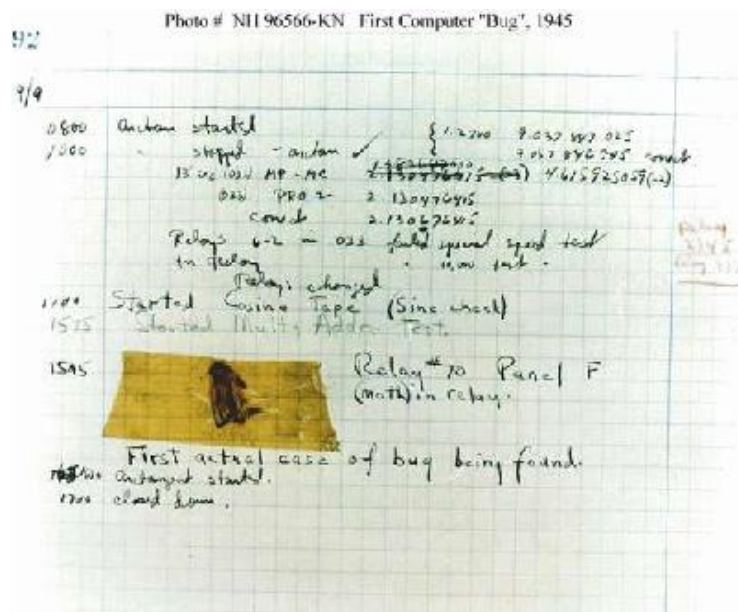 Photo # NH 96566-KN First Computer "Bug", 1945
92
9/9
0800 Antan started
1000 " stopped - antan ✓ { 1.2700 9.037 847 025
9.037 846 995 correct
13"uc (032) MP - MC 2.130476415 4.615925059(-2)
033 PRO 2 2.130476415
correct 2.130676415
Relays 6-2 in 033 failed special speed test
in relay " 11,000 test.
Relays changed
1100 Started Cosine Tape (Sine check)
1525 Started Multy Adder Test.
1545 Relay #70 Panel F
(moth) in relay.
First actual case of bug being found.
antangent started.
1700 closed down.